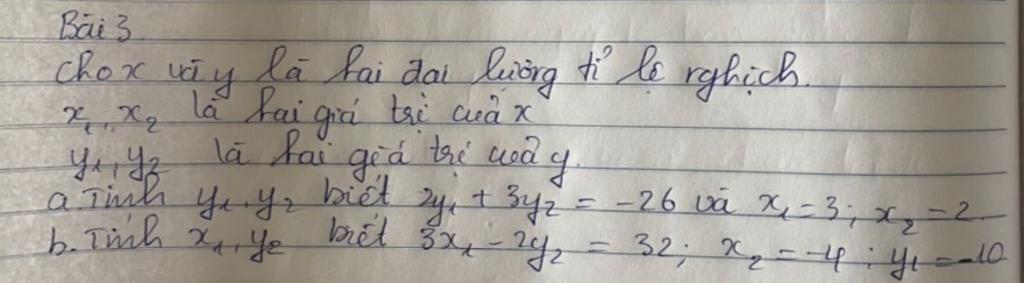 Bài 3
Cho x và y là hai đai lường tỉ lệ nghịch.
x₁, x₂ là hai giá trị của x
y₁, y₂ là hai giá trị của y.
a. Tính y₁, y₂ biết 2y₁ + 3y₂ = -26 và x₁ = 3; x₂ = 2.
b. Tính x₁, y₂ biết 3x₁ - 2y₂ = 32; x₂ = -4; y₁ = -10